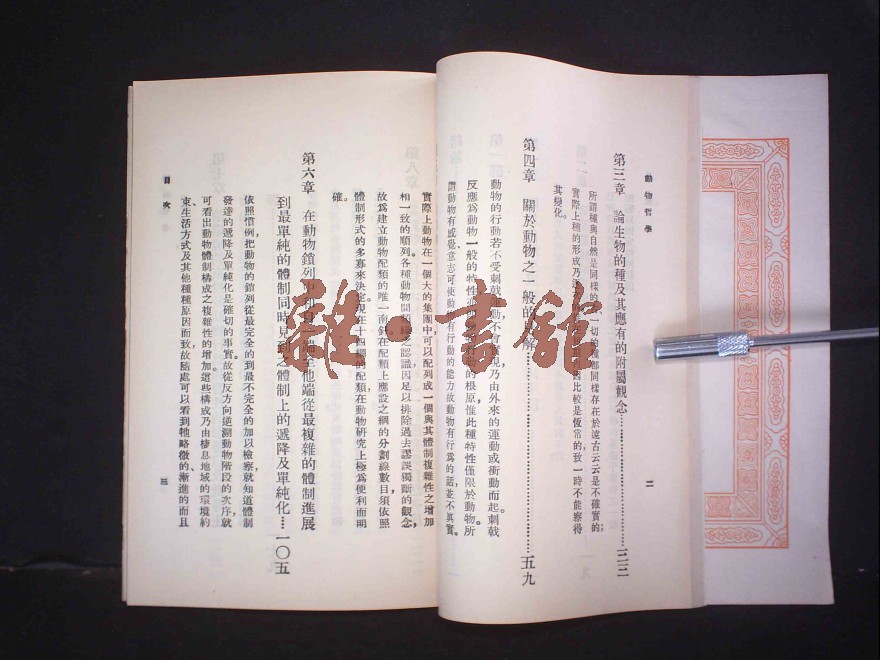 動物哲學
第三章 論生物的種及其應有的附屬觀念
所謂種與自然是同樣的一切的種都同樣存在於遠古云云是不確實的
實際上種的形成乃比較是恆常的致一時不能察得
其變化。
第四章 關於動物之一般的見解 五九
動物的行動若不受刺戟運動不會實現乃由外來的運動或衝動而起刺戟
反應爲動物一般的特性的根原惟此種特性僅限於動物。所
謂動物有感覺意志可使動物有行動的能力故動物有行爲的話並不眞實。
二
實際上動物在一個大的集團中可以配列成一個與其體制複雜性之增加
相一致的順列。各種動物間之認識因足以排除過去謬誤獨斷的觀念,
故爲建立動物配類的唯一南針。在配類上應設之綱的分劃線數目須依照
體制形式的多寡來決定。現在十四綱的配類在動物研究上極爲便利而明
確。
第六章 在動物鎖列中初自一端至他端從最複雜的體制進展
到最單純的體制同時見到之體制上的遞降及單純化 一〇五
依照慣例,把動物的鎖列從最完全的到最不完全的加以檢察,就知道體制
發達的遞降及單純化是確切的事實。故從反方向逆溯動物階段的次序,就
可看出動物體制構成之複雜性的增加。這些構成乃由棲息地域的環境約
束、生活方式及其他種種原因而致故隨處可以看到牠略微的、漸進的而且
目次
三
書舘